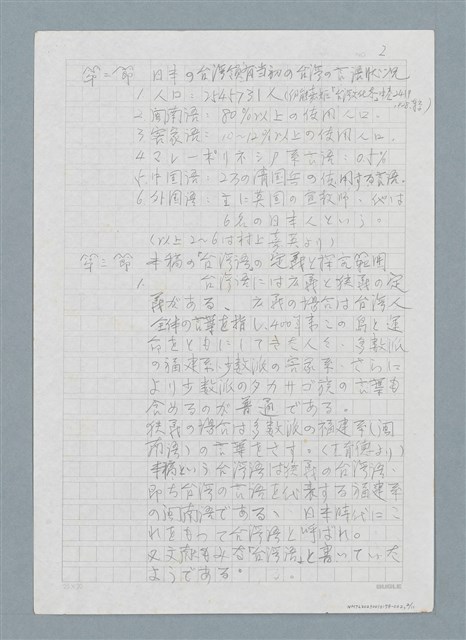 2
第二節 日本の台湾領有当初の台湾の言語状況
1. 人口: 2545731人(伊能嘉矩「台湾文化志
2. 閩南語: 80%以上の使用人口.
3. 客家語: 10~12%以上の使用人口.
4. マレーポリネシア系言語: 0.5%
5. 中国語: 2~3の清国兵の使用する言語.
6. 外国語: 主に英国の宣教師、他は
6名の日本人という。
(以上2~6は村上嘉英より)
第三節 本稿の「台湾語」の定義と探究範囲
1. 台湾語には広義と狭義の定
義がある、広義の場合は台湾人
全体の言葉を指し、400年来この島と運
命をともにしてきた人々、多数派
の福建系、少数派の客家系、さらに
より少数派のタカサゴ族の言葉も
含めるのが普通である。
狭義の場合は多数派の福建系(閩
南語)の言葉をさす。(王育徳より)
本稿という台湾語は狭義の台湾語、
即ち台湾の言語を代表する福建系
の閩南語である、日本時代にこ
れをもって台湾語と呼ばれ。
又文献も「台湾語」と書いていた
ようである。